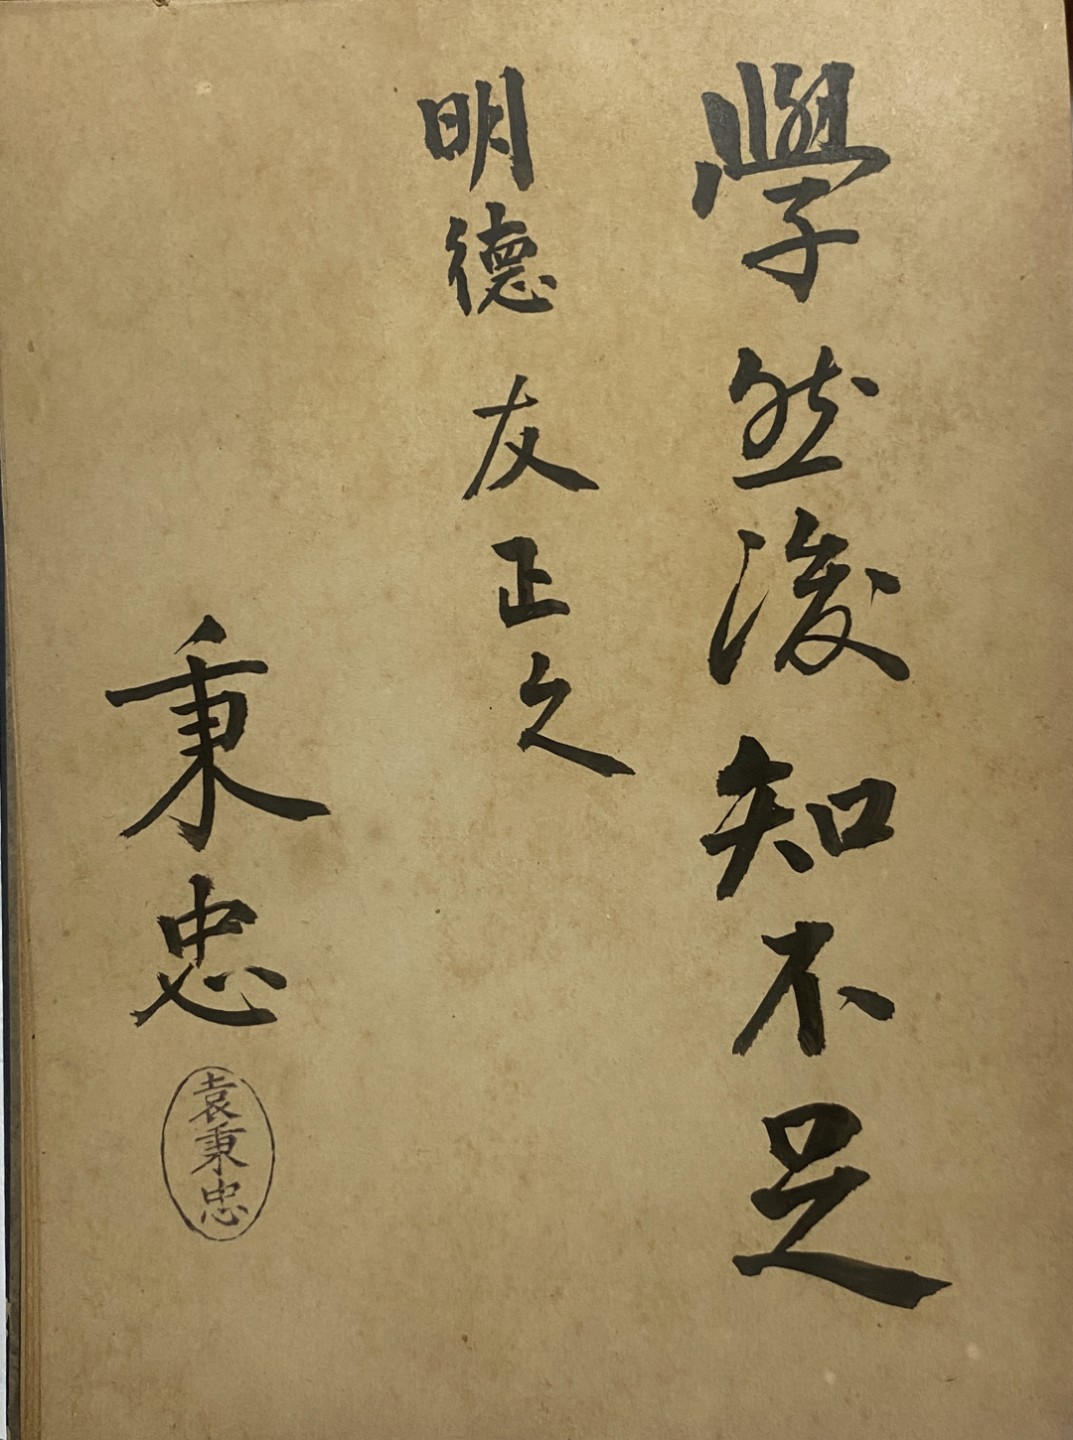 學然後知不足
明德友正之
秉忠
袁秉忠